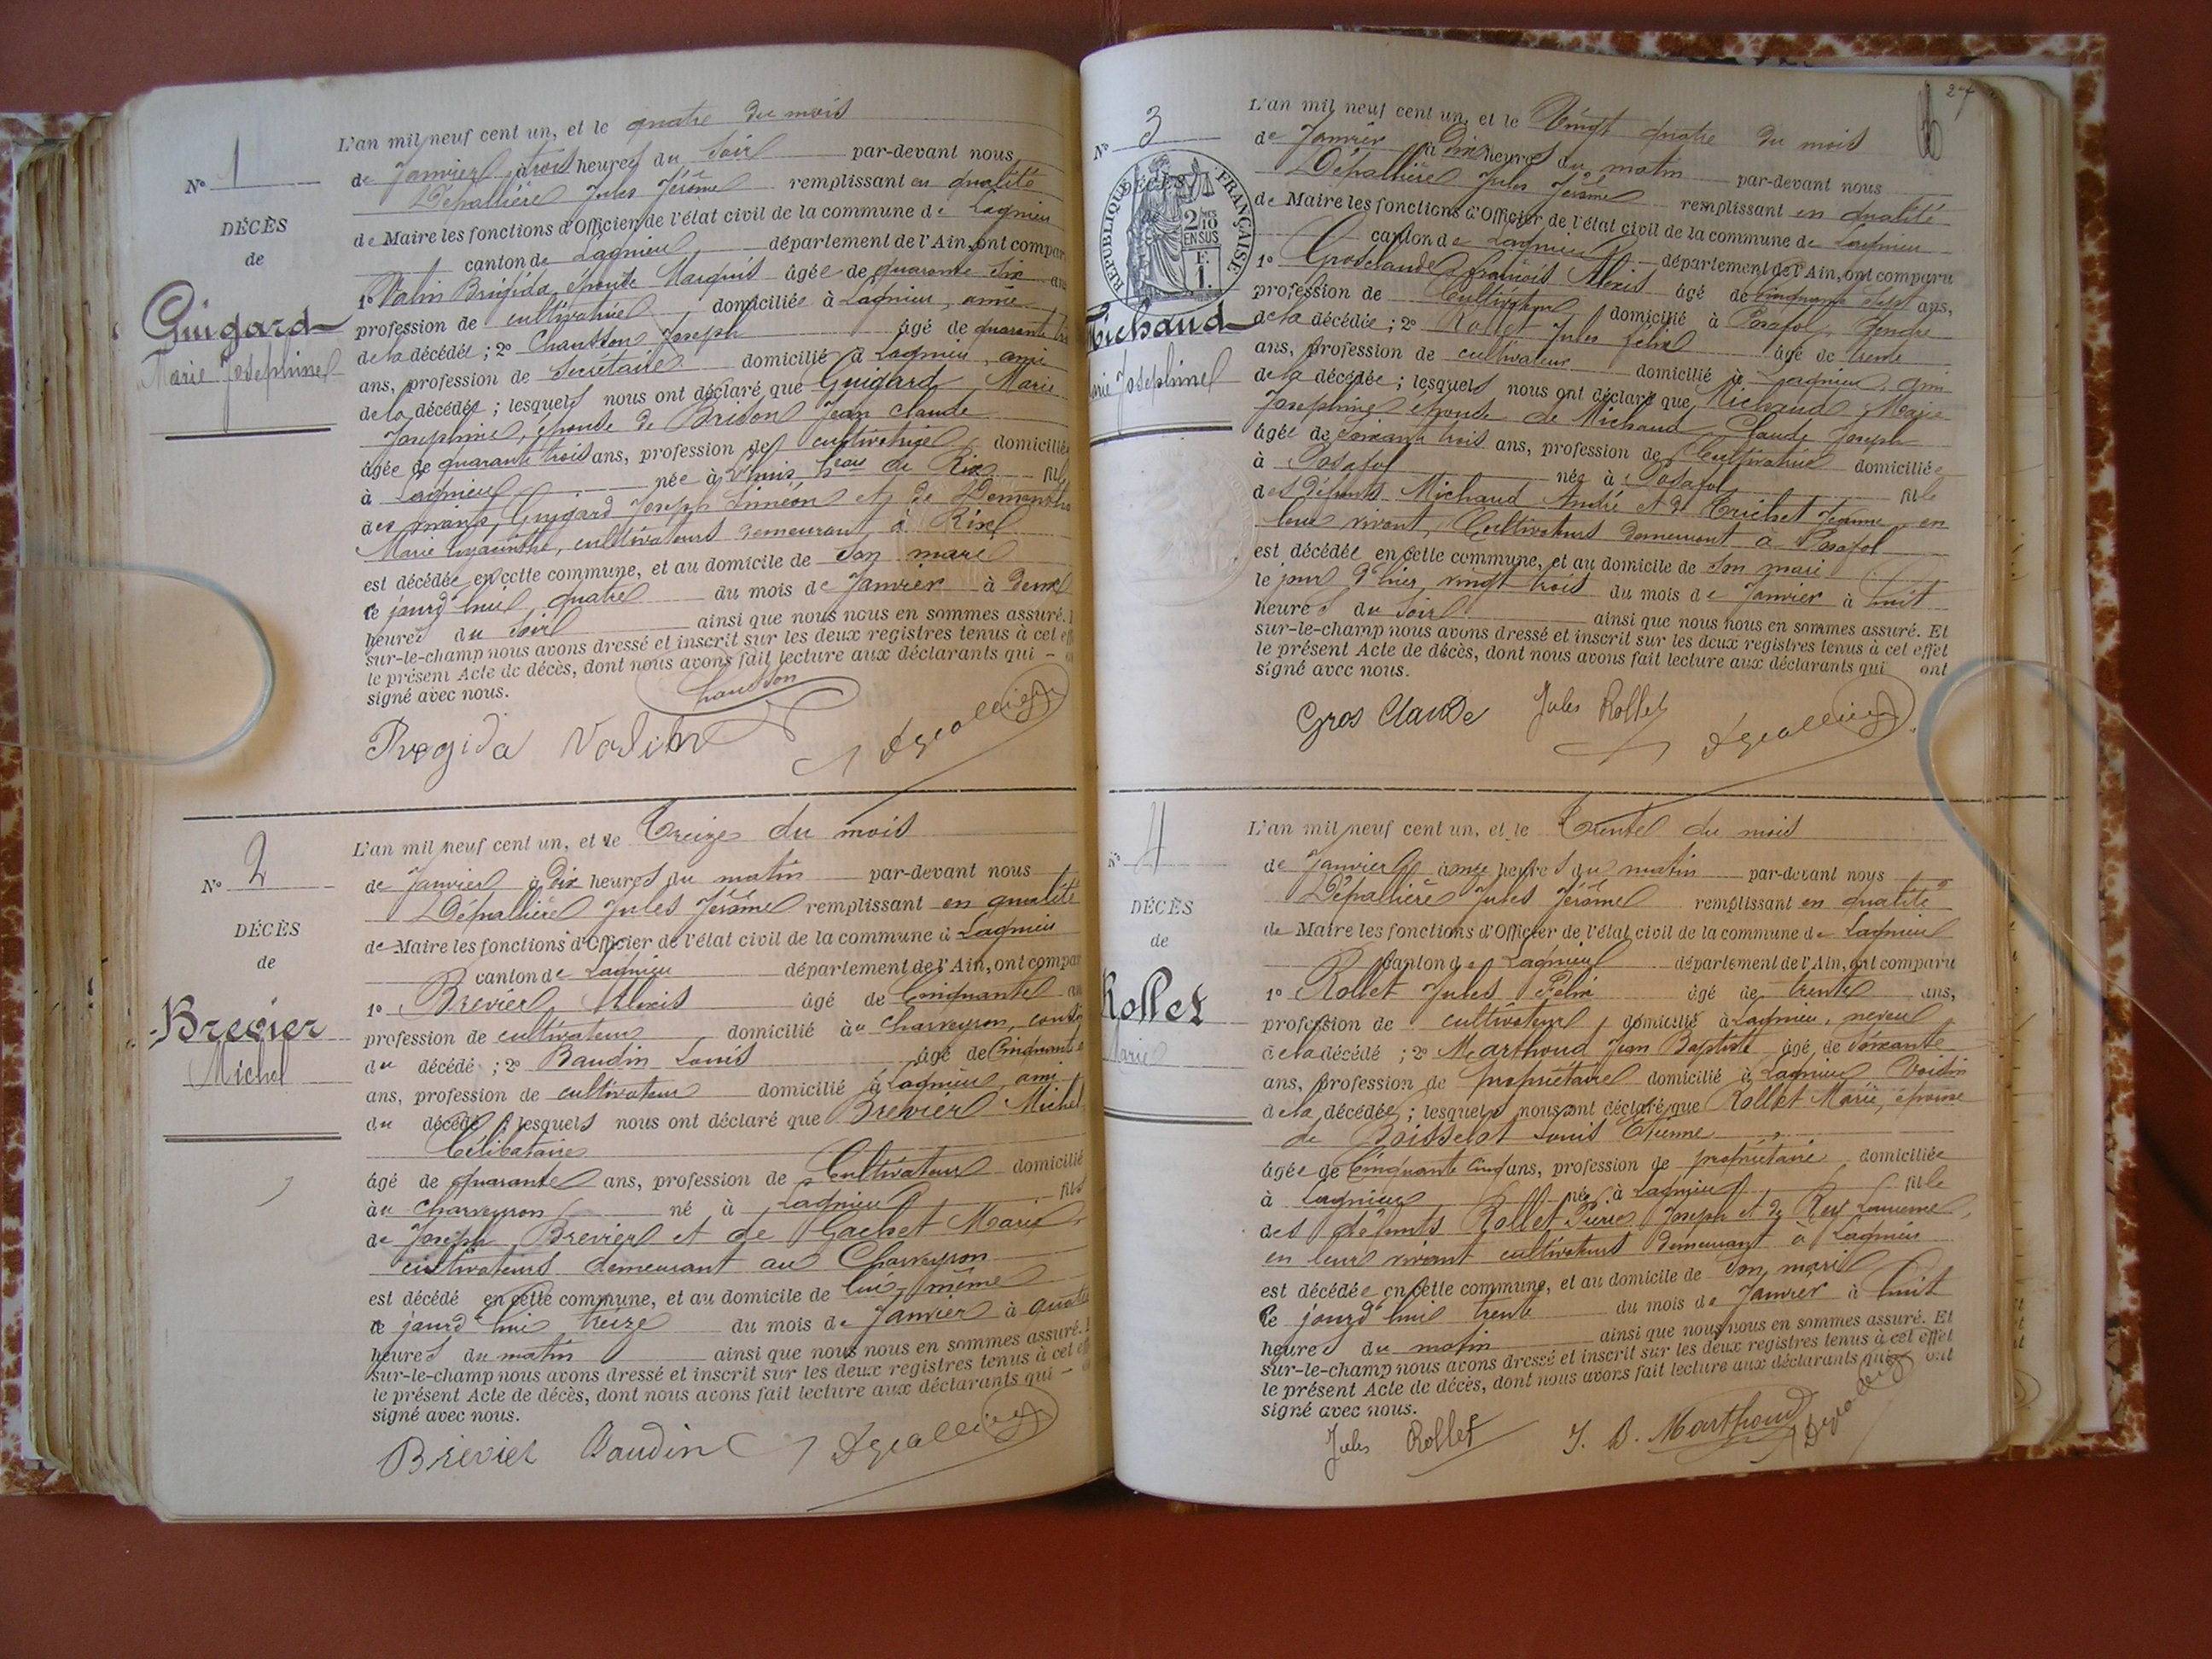 N° 1
DÉCÈS
de
Guigard
Marie Josephine
L'an mil neuf cent un, et le quatre du mois
de Janvier à trois heures du Soir par-devant nous
Dépallière Jules Jérôme remplissant en qualité
de Maire les fonctions d'Officier de l'état civil de la commune de Lagnieu
canton de Lagnieu département de l'Ain, ont compar
1° Valin Brigida, épouse Marquis âgée de quarante six ans
profession de cultivatrice, domiciliée à Lagnieu, amie
de la décédée; 2° Chausson Joseph âgé de quarante
ans, profession de Secrétaire domicilié à Lagnieu, ami
de la décédée; lesquels nous ont déclaré que Guigard Marie
Josephine, épouse de Brison Jean Claude
âgée de quarante trois ans, profession de cultivatrice, domiciliée
à Lagnieu née à Lhuis hau de Rix fille
des vivants Guigard Joseph Siméon et de
Marie hyacinthe, cultivateurs demeurant à Rix
est décédée en cette commune, et au domicile de Son mari
ce jourd'hui quatre du mois de Janvier à deux
heures du Soir ainsi que nous nous en sommes assuré.
sur-le-champ nous avons dressé et inscrit sur les deux registres tenus à cet eff
le présent Acte de décès, dont nous avons fait lecture aux déclarants qui
signé avec nous.
Chausson
Bregida Valin Depallière
N° 2
DÉCÈS
de
Brevier
Michel
L'an mil neuf cent un, et le Treize du mois
de Janvier à Dix heures du matin par-devant nous
Dépallière Jules Jérôme remplissant en qualité
de Maire les fonctions d'Officier de l'état civil de la commune à Lagnieu
canton de Lagnieu département de l'Ain, ont compar
1° Brevier Alexis âgé de Cinquante
profession de cultivateur, domicilié au Charveyron, cousin
du décédé; 2° Baudin Louis âgé de Cinquante
ans, profession de cultivateur domicilié à Lagnieu, ami
du décédé; lesquels nous ont déclaré que Brevier Michel
Célibataire
âgé de quarante ans, profession de Cultivateur domicilié
au Charveyron né à Lagnieu fils
de Joseph Brevier et de Gachet Marie,
cultivateurs demeurant au Charveyron
est décédé en cette commune, et au domicile de lui-même
ce jourd'hui treize du mois de Janvier à quatre
heures du matin ainsi que nous nous en sommes assuré.
sur-le-champ nous avons dressé et inscrit sur les deux registres tenus à cet eff
le présent Acte de décès, dont nous avons fait lecture aux déclarants qui
signé avec nous.
Brevier Baudin Depallière
27
N° 3
RÉPUBLIQUE FRANÇAISE
DÉCÈS
de
2/10 MES
EN SUS
F.
1.
Michaud
Marie Josephine
L'an mil neuf cent un, et le Vingt quatre du mois
de Janvier à Dix heures du matin par-devant nous
Dépallière Jules Jérôme remplissant en qualité
de Maire les fonctions d'Officier de l'état civil de la commune de Lagnieu
canton de Lagnieu département de l'Ain, ont comparu
1° Grosclaude françois Alexis âgé de Cinquante sept ans,
profession de Cultivateur, domicilié à Posafol, Gendre
de la décédée; 2° Rollet Jules félix âgé de trente
ans, profession de cultivateur domicilié à Lagnieu, ami
de la décédée; lesquels nous ont déclaré que Michaud Marie
Josephine épouse de Michaud Claude Joseph
âgée de Soixante trois ans, profession de Cultivatrice domiciliée
à Posafol née à Posafol fille
des défunts Michaud André et de Trichet Jeanne, en
leur vivant, Cultivateurs demeurant à Posafol
est décédée en cette commune, et au domicile de Son mari
le jour d'hier, vingt trois du mois de Janvier à huit
heures du Soir ainsi que nous nous en sommes assuré. Et
sur-le-champ nous avons dressé et inscrit sur les deux registres tenus à cet effet
le présent Acte de décès, dont nous avons fait lecture aux déclarants qui ont
signé avec nous.
Gros Claude Jules Rollet Depallière
N° 4
DÉCÈS
de
Rollet
Marie
L'an mil neuf cent un, et le Trente du mois
de Janvier à onze heures du matin par-devant nous
Dépallière Jules Jérôme remplissant en qualité
de Maire les fonctions d'Officier de l'état civil de la commune de Lagnieu
canton de Lagnieu département de l'Ain, ont comparu
1° Rollet Jules Félix âgé de trente ans,
profession de cultivateur, domicilié à Lagnieu, neveu
de la décédé; 2° Marthoud Jean Baptiste âgé de Soixante
ans, profession de propriétaire domicilié à Lagnieu Voisin
de la décédée; lesquels nous ont déclaré que Rollet Marie, épouse
de Boisserat Louis Etienne
âgée de Cinquante cinq ans, profession de propriétaire domiciliée
à Lagnieu née à Lagnieu fille
des défunts Rollet Pierre Joseph et de Rey Laurence,
en leur vivant cultivateurs demeurant à Lagnieu
est décédée en cette commune, et au domicile de Son mari
ce jourd'hui trente du mois de Janvier à huit
heures du matin ainsi que nous nous en sommes assuré. Et
sur-le-champ nous avons dressé et inscrit sur les deux registres tenus à cet effet
le présent Acte de décès, dont nous avons fait lecture aux déclarants qui ont
signé avec nous.
Jules Rollet J. B. Marthoud Depallière